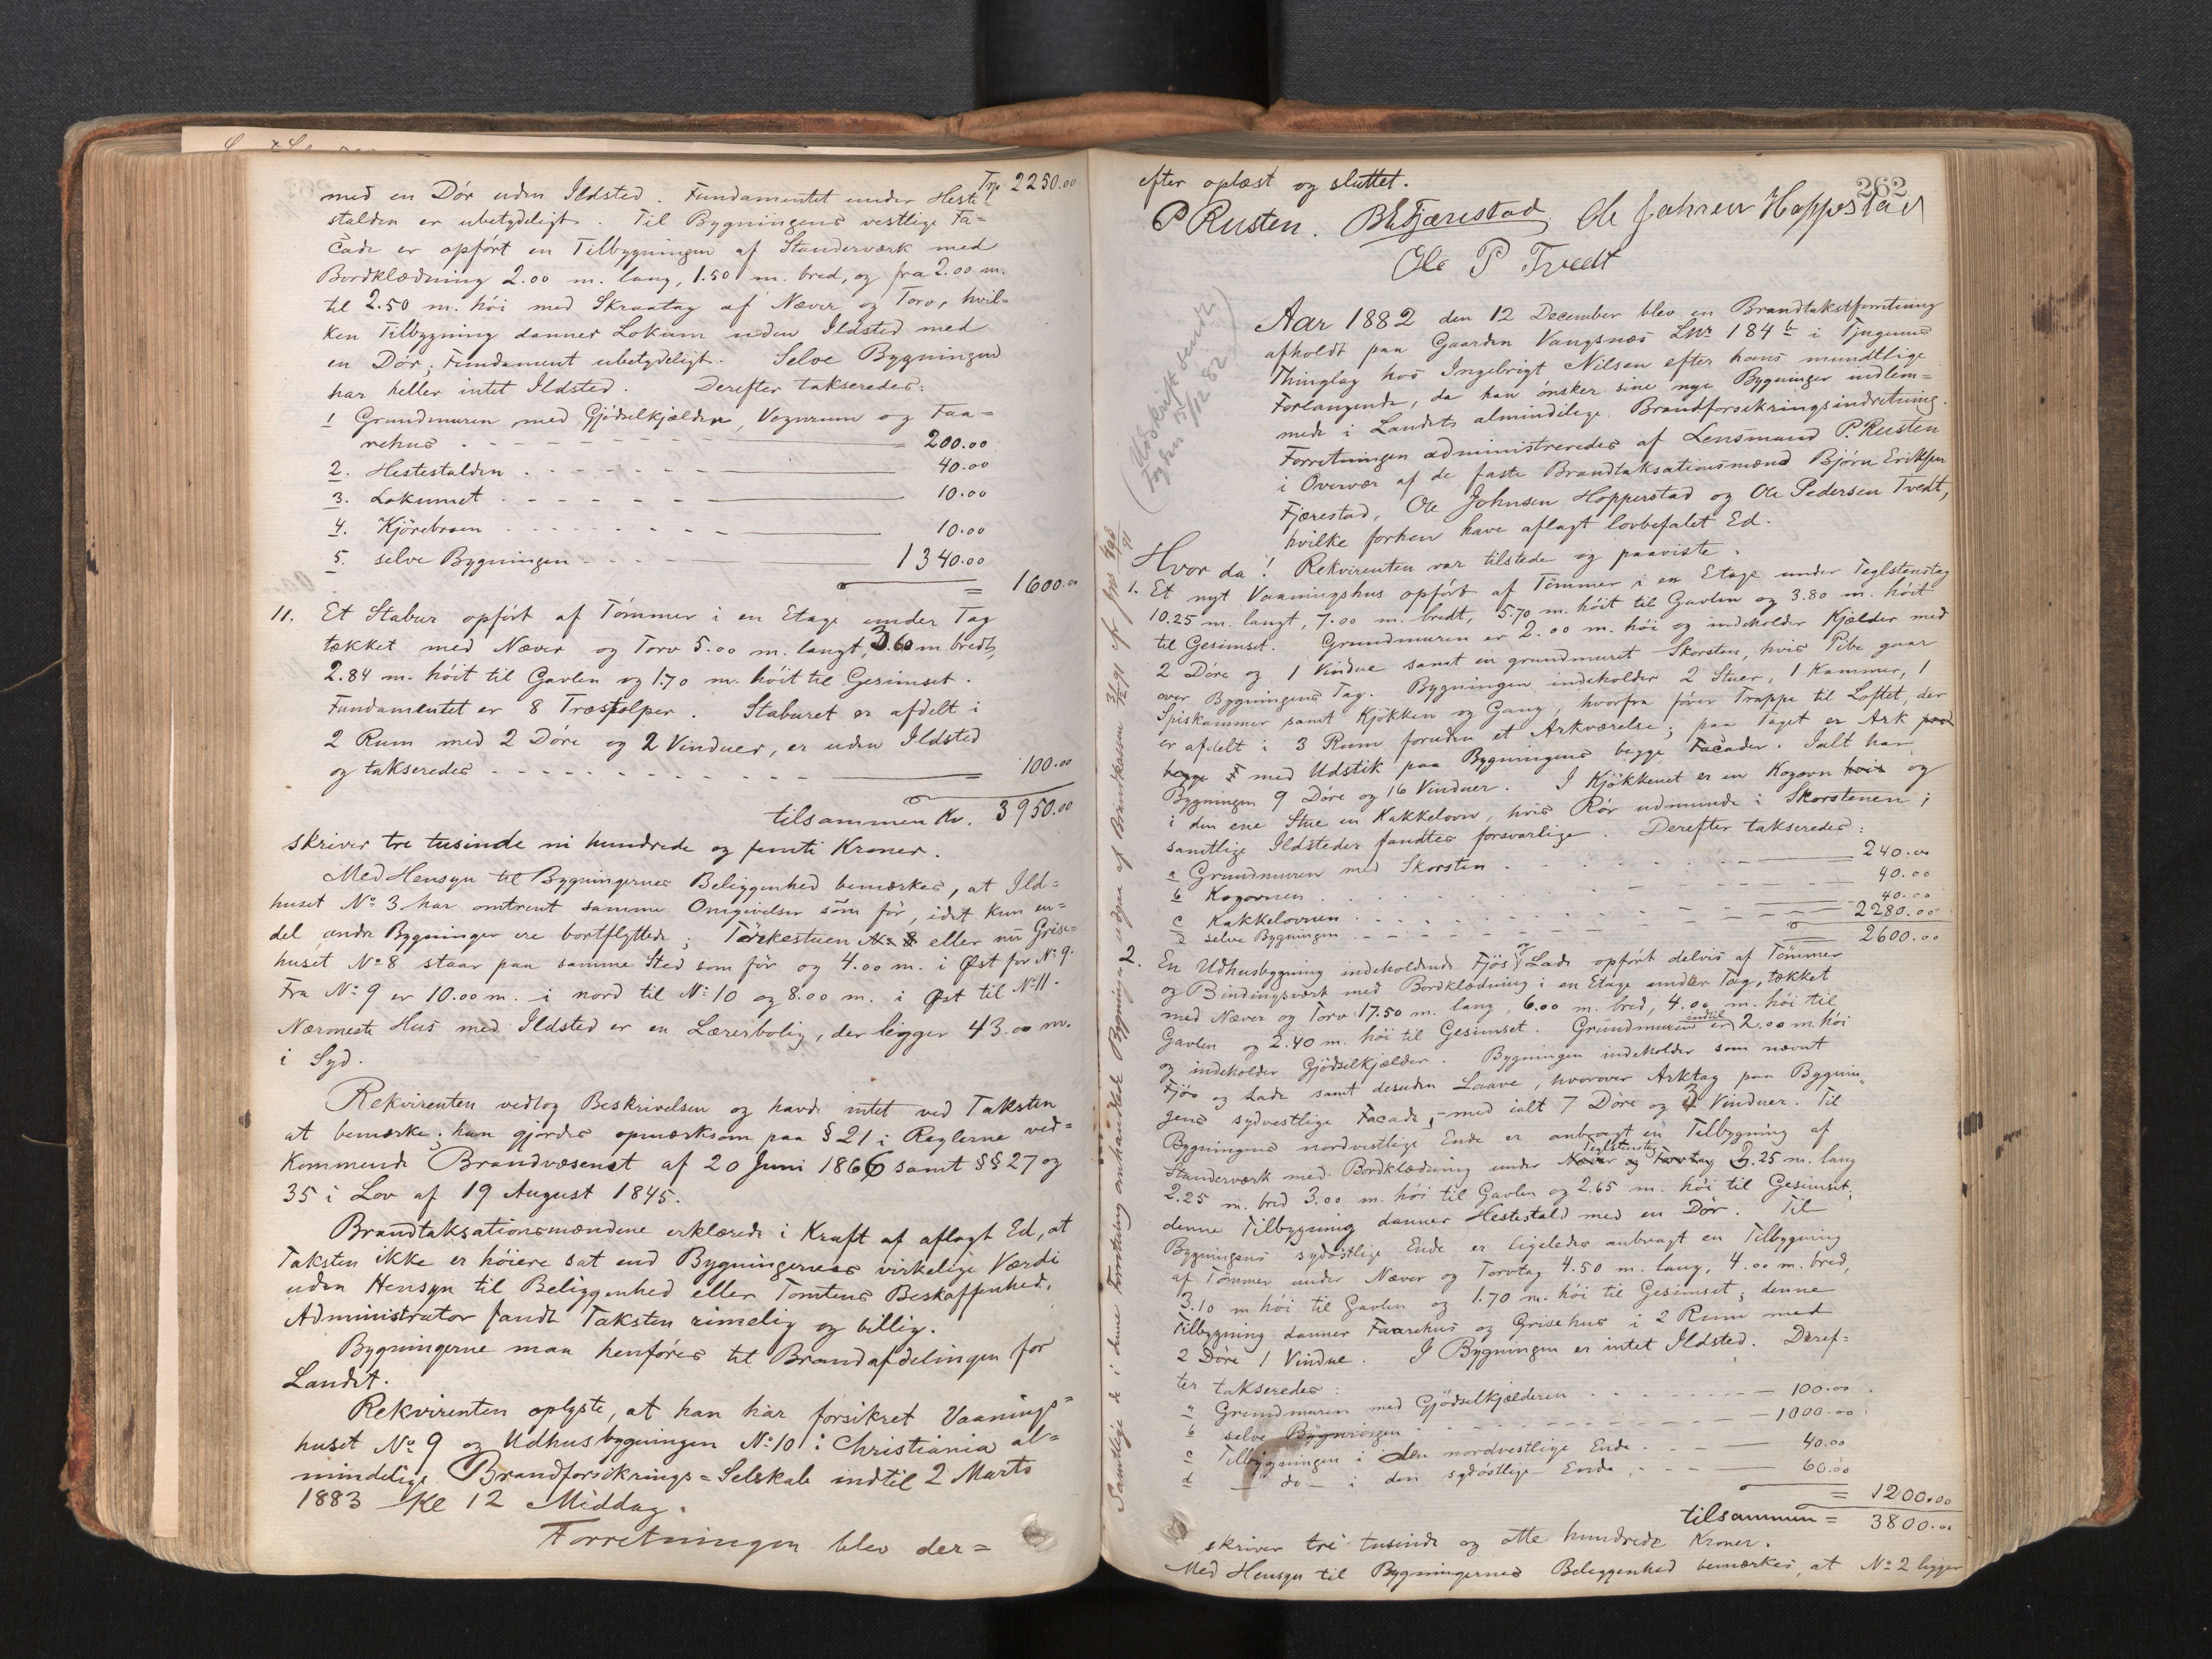 Trp. 2250.00
med en Dör uden Ildsted. Fundamentet under Heste-
stalden er ubetydeligt. Til Bygningens vestlige Fa-
çade er opfört en Tilbygningen af Standerværk med
Bordklædning 2.00 m. lang, 1.50 m. bred, og fra 2.00 m.
til 2.50 m. höi med Skraatag af Næver og Torv, hvil-
ken Tilbygning danner Lokum uden Ildsted med
en Dör; Fundament ubetydeligt. Selve Bygningen
har heller intet Ildsted. Derefter takseredes:
1 Grundmuren med Gjödselkjælder, Vognrum og Faa-
rehus 200.00
2. Hestestalden 40.00
3. Lokumet 10.00
4. Kjörebroen 10.00
5. selve Bygningen 1340.00
= 1600.00
11. Et Stabur opfört af Tömmer i en Etage under Tag
tækket med Næver og Torv 5.00 m. langt, 3.60 m bredt,
2.84 m. höit til Gavlen og 1.70 m. höit til Gesimset.
Fundamentet er 8 Træstolper. Staburet er afdelt i
2 Rum med 2 Döre og 2 Vinduer, er uden Ildsted
og takseredes 100.00
tilsammen Kr. 3950.00
skriver tre tusinde ni hundrede og femti Kroner.
Med Hensyn til Bygningernes Beliggenhed bemærkes, at Ild-
huset No 3 har omtrent samme Omgivelser som för, idet kun en-
del andre Bygninger ere bortflyttede; Törkestuen No 8 eller nu Grise-
huset No 8 staar paa samme Sted som för og 4.00 m. i Øst for No 9.
Fra No 9 er 10.00 m. i nord til No 10 og 8.00 m. i Øst til No 11.
Nærmeste Hus med Ildsted er en Lærerbolig, der ligger 43.00 m.
i Syd.
Rekvirenten vedtog Beskrivelsen og havde intet ved Taksten
at bemærke; han gjordes opmærksom paa § 21 i Reglerne ved-
kommende Brandvæsenet af 20 Juni 1866 samt §§ 27 og
35 i Lov af 19 August 1845.
Brandtaksationsmændene erklærede i Kraft af aflagt Ed, at
Taksten ikke er höiere sat end Bygningernes virkelige Værdi
uden Hensyn til Beliggenhed eller Tomtens Beskaffenhed.
Administrator fandt Taksten rimelig og billig.
Bygningerne maa henföres til Brandafdelingen for
Landet.
Rekvirenten oplyste, at han har forsikret Vaanings-
huset No 9 og Udhusbygningen No 10 i Christiania al-
mindelige Brandforsikrings-Selskab indtil 2 Marts
1883 Kl 12 Middag.
Forretningen blev der-
262
efter oplæst og sluttet.
P Rusten. B E Fjærestad Ole Johnsen Hopperstad
Ole P Tvedt
(Udskrift sendt
Fogden 15/12 82)
Aar 1882 den 12 December blev en Brandtakstforretning
afholdt paa Gaarden Vangsnæs Lnr 184 b i Tjugums
Thinglag hos Ingebrigt Nilsen efter hans mundtlige
Forlangende, da han önsker sine nye Bygninger indlem-
mede i Landets almindelige Brandforsikringsindretning.
Forretningen administreredes af Lensmand P. Rusten
i Overvær af de faste Brandtaksationsmænd Björn Eriksen
Fjærestad, Ole Johnsen Hopperstad og Ole Pedersen Tvedt,
hvilke forhen have aflagt lovbefalet Ed.
Hvor da! Rekvirenten var tilstede og paaviste.
1. Et nyt Vaaningshus opfört af Tömmer i en Etage under Teglstenstag
10.25 m. langt, 7.00 m. bredt, 5.70 m. höit til Gavlen og 3.80 m. höit
til Gesimset. Grundmuren er 2.00 m. höi og indeholder Kjælder med
2 Döre og 1 Vindue samt en grundmuret Skorsten, hvis Pibe gaar
over Bygningens Tag. Bygningen indeholder 2 Stuer, 1 Kammer, 1
Spiskammer samt Kjökken og Gang, hvorfra förer Trappe til Loftet, der
er afdelt i 3 Rum foruden et Arkværelse; paa Taget er Ark paa
begge med Udstik paa Bygningens begge Façader. Ialt har
Bygningen 9 Döre og 16 Vinduer. I Kjökkenet er en Kogovn hvis og
i den ene Stue en Kakkelovn, hvis Rör udmunde i Skorstenen;
samtlige Ildsteder fandtes forsvarlige. Derefter takseredes:
a Grundmuren med Skorsten 240.00
b Kogovnen 40.00
c Kakkelovnen 40.00
d selve Bygningen 2280.00
2600.00
2. En Udhusbygning indeholdende Fjös og Lade opfört delvis af Tömmer
og Bindingsværk med Bordklædning i en Etage under Tag, tækket
med Næver og Torv 17.50 m. lang, 6.00 m. bred, 4.00 m. höi til
Gavlen og 2.40 m. höi til Gesimset. Grundmuren er indtil 2.00 m. höi
og indeholder Gjödselkjælder. Bygningen indeholder som nævnt
Fjös og Lade samt desuden Laave, hvorover Arktag paa Bygnin-
gens sydvestlige Facade, med ialt 7 Döre og 3 Vinduer. Til
Bygningens nordvestlige Ende er anbragt en Tilbygning af
Standerværk med Bordklædning under Næver og Torvtag Teglstenstag 3.25 m. lang
2.25 m. bred 3.00 m. höi til Gavlen og 2.65 m. höi til Gesimset;
denne Tilbygning danner Hestestald med en Dör. Til
Bygningens sydöstlige Ende er ligeledes anbragt en Tilbygning
af Tömmer under Næver og Torvtag 4.50 m. lang, 4.00 m. bred,
3.10 m höi til Gavlen og 1.70 m. höi til Gesimset; denne
Tilbygning danner Faarehus og Grisehus i 2 Rum med
2 Döre 1 Vindue. I Bygningen er intet Ildsted. Deref-
ter takseredes:
a Grundmuren med Gjödselkjælderen 100.00
b selve Bygningen 1000.00
c Tilbygningen i den nordvestlige Ende 40.00
d do i den sydöstlige Ende 60.00
= 1200.00
tilsammen = 3800.00
skriver tre tusinde og otte hundrede Kroner.
Med Hensyn til Bygningernes Beliggenhed bemærkes, at No 2 ligger
Samtlige de i denne Forretning omhandlede Bygninger udgaa af Brandkassen